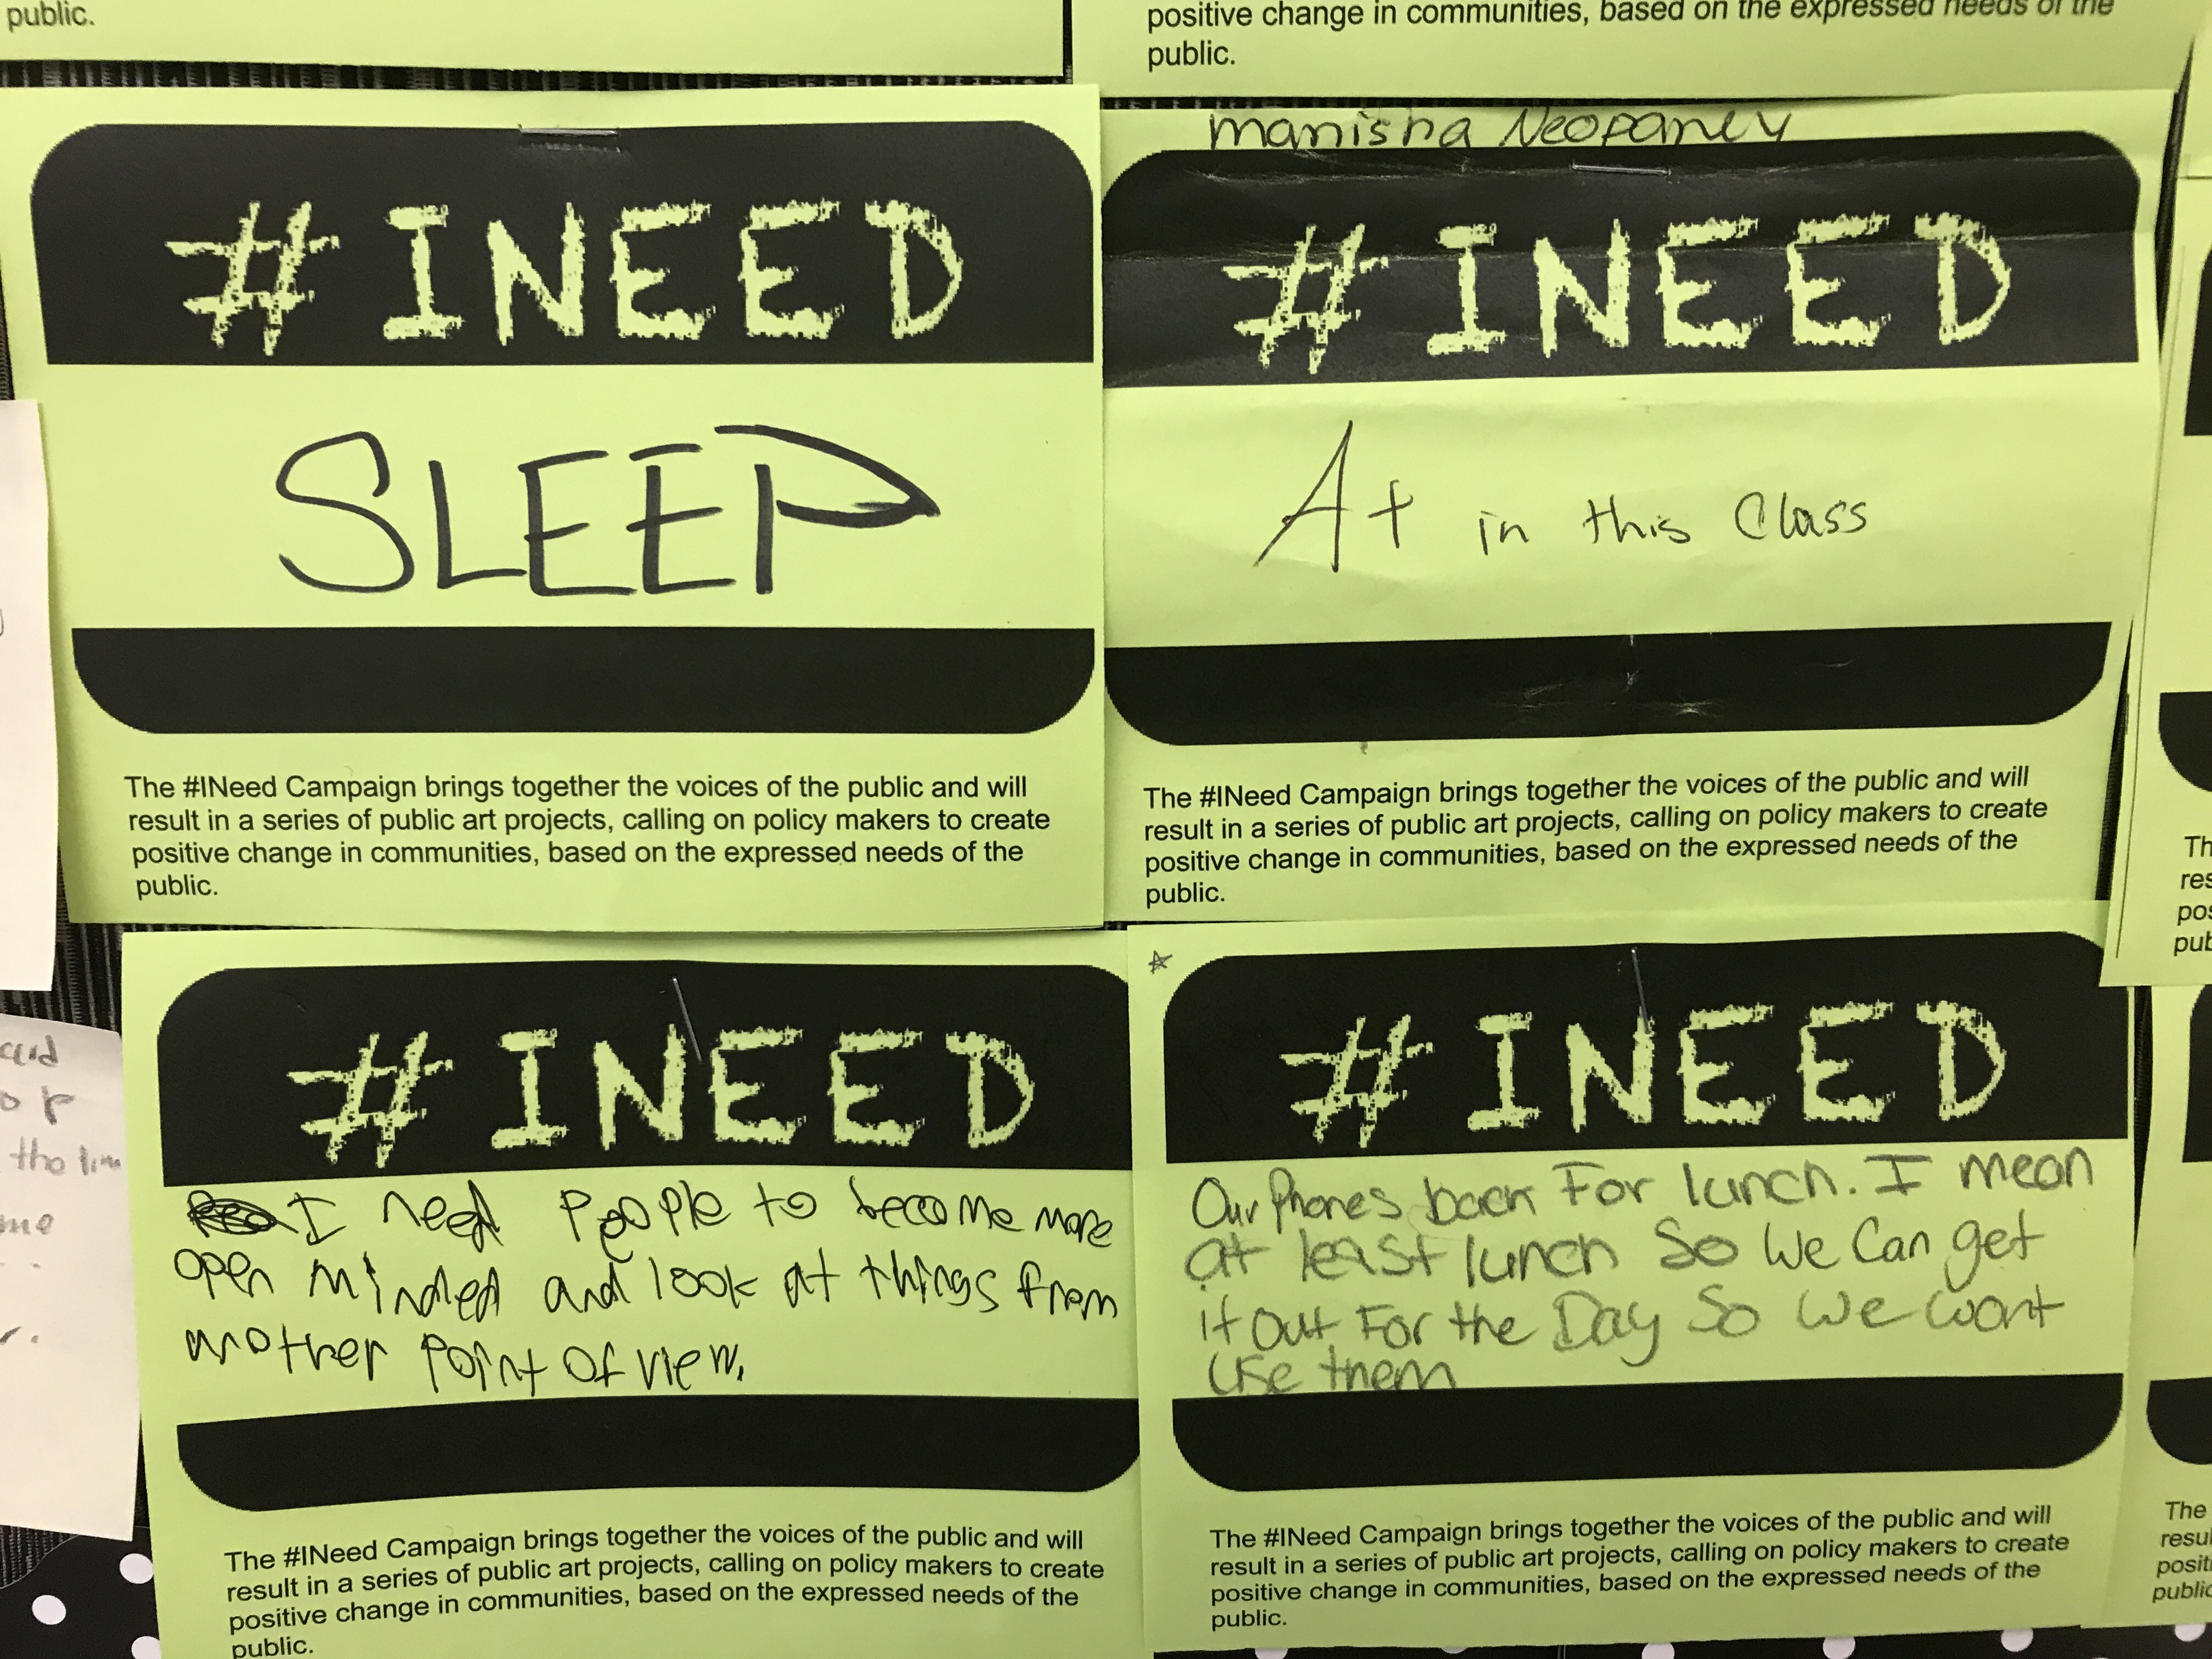 public.
positive change in communities, based on the expressed needs of the
public.
#INEED
SLEEP
The #INeed Campaign brings together the voices of the public and will
result in a series of public art projects, calling on policy makers to create
positive change in communities, based on the expressed needs of the
public.
manisha Neopaney
#INEED
A+ in this Class
The #INeed Campaign brings together the voices of the public and will
result in a series of public art projects, calling on policy makers to create
positive change in communities, based on the expressed needs of the
public.
#INEED
I need People to become more
open minded and look at things from
another Point of view.
The #INeed Campaign brings together the voices of the public and will
result in a series of public art projects, calling on policy makers to create
positive change in communities, based on the expressed needs of the
public.
#INEED
Our Phones back For lunch. I mean
at least lunch So We Can get
it out For the Day So We wont
Use them
The #INeed Campaign brings together the voices of the public and will
result in a series of public art projects, calling on policy makers to create
positive change in communities, based on the expressed needs of the
public.
The